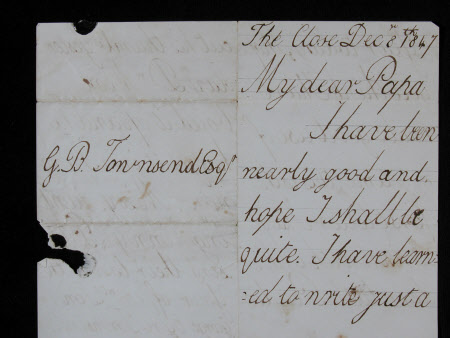 G. B. Townsend Esqr
The Close Decr 8th 1847
My dear Papa
I have been
nearly good and
hope I shall be
quite. I have learn=
=ed to write just a